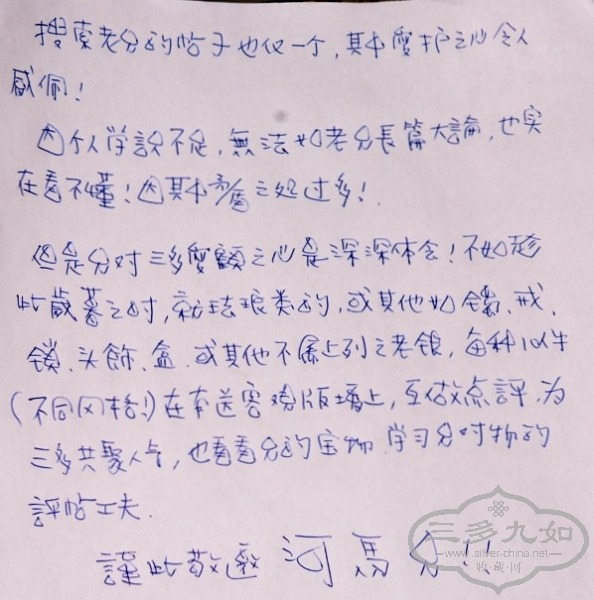 搜索老兮的帖子也仅一个,其中爱护之心令人
感佩!
因个人学識不足,無法如老兮長篇大論,也实
在看不懂!因其中矛盾之処过多!
但是兮对三多愛顧之心是深深体会!不如趁
此歲暮之时,就珐琅类的,或其他如镯、戒、
鎖、头飾、盒、或其他不屬上列之老银,每种10件
(不同风格!)在本送客观版塊上,互做点評,为
三多共聚人气,也看看兮的宝物,学习兮对物的
評帖工夫.
謹此敬邀 河馬兮
三多九如
www.silver-china.net
收藏网